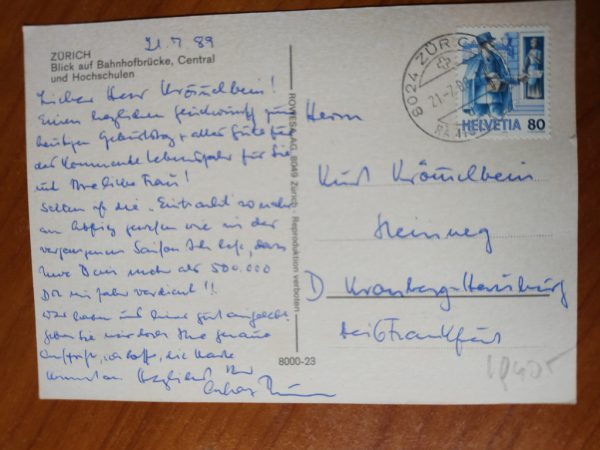 ZÜRICH
Blick auf Bahnhofbrücke, Central
und Hochschulen
21.7.89
Lieber Herr Krömmelbein!
Einen herzlichen Glückwunsch zum
heutigen Geburtstag + alles Gute für
das kommende Lebensjahr für Sie
und Ihre liebe Frau!
Selten ist die "Eintracht" so nahe
am Abstieg gewesen wie in der
vergangenen Saison. Ich las, dass
Uwe Bein mehr als 500.000
DM im Jahr verdient!!
Wir haben uns hier gut
Geben Sie mir doch Ihre genaue
Anschrift, ich hoffe, die Karte
kommt an. Herzlichst Ihr
ROVESA AG, 8049 Zürich - Reproduktion verboten
8000-23
8024 ZÜRICH
21-7.8
HELVETIA 80
Herrn
Kurt Krömmelbein
Steinweg
D Kronberg-
bei Frankfurt